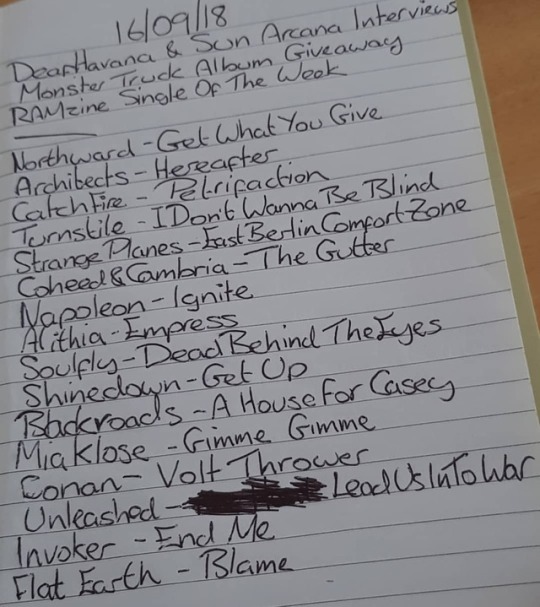 16/09/18
Dear Havana & Sun Arcana Interviews
Monster Truck Album Giveaway
RAMzine Single Of The Week
Northward - Get What You Give
Architects - Hereafter
Catch Fire - Petrifaction
Turnstile - I Don't Wanna Be Blind
Strange Planes - East Berlin Comfort Zone
Coheed & Cambria - The Gutter
Napoleon - Ignite
Alithia - Empress
Soulfly - Dead Behind The Eyes
Shinedown - Get Up
Backroads - A House For Casey
Mia Klose - Gimme Gimme
Conan - Volt Thrower
Unleashed - Lead Us In To War
Invoker - End Me
Flat Earth - Blame